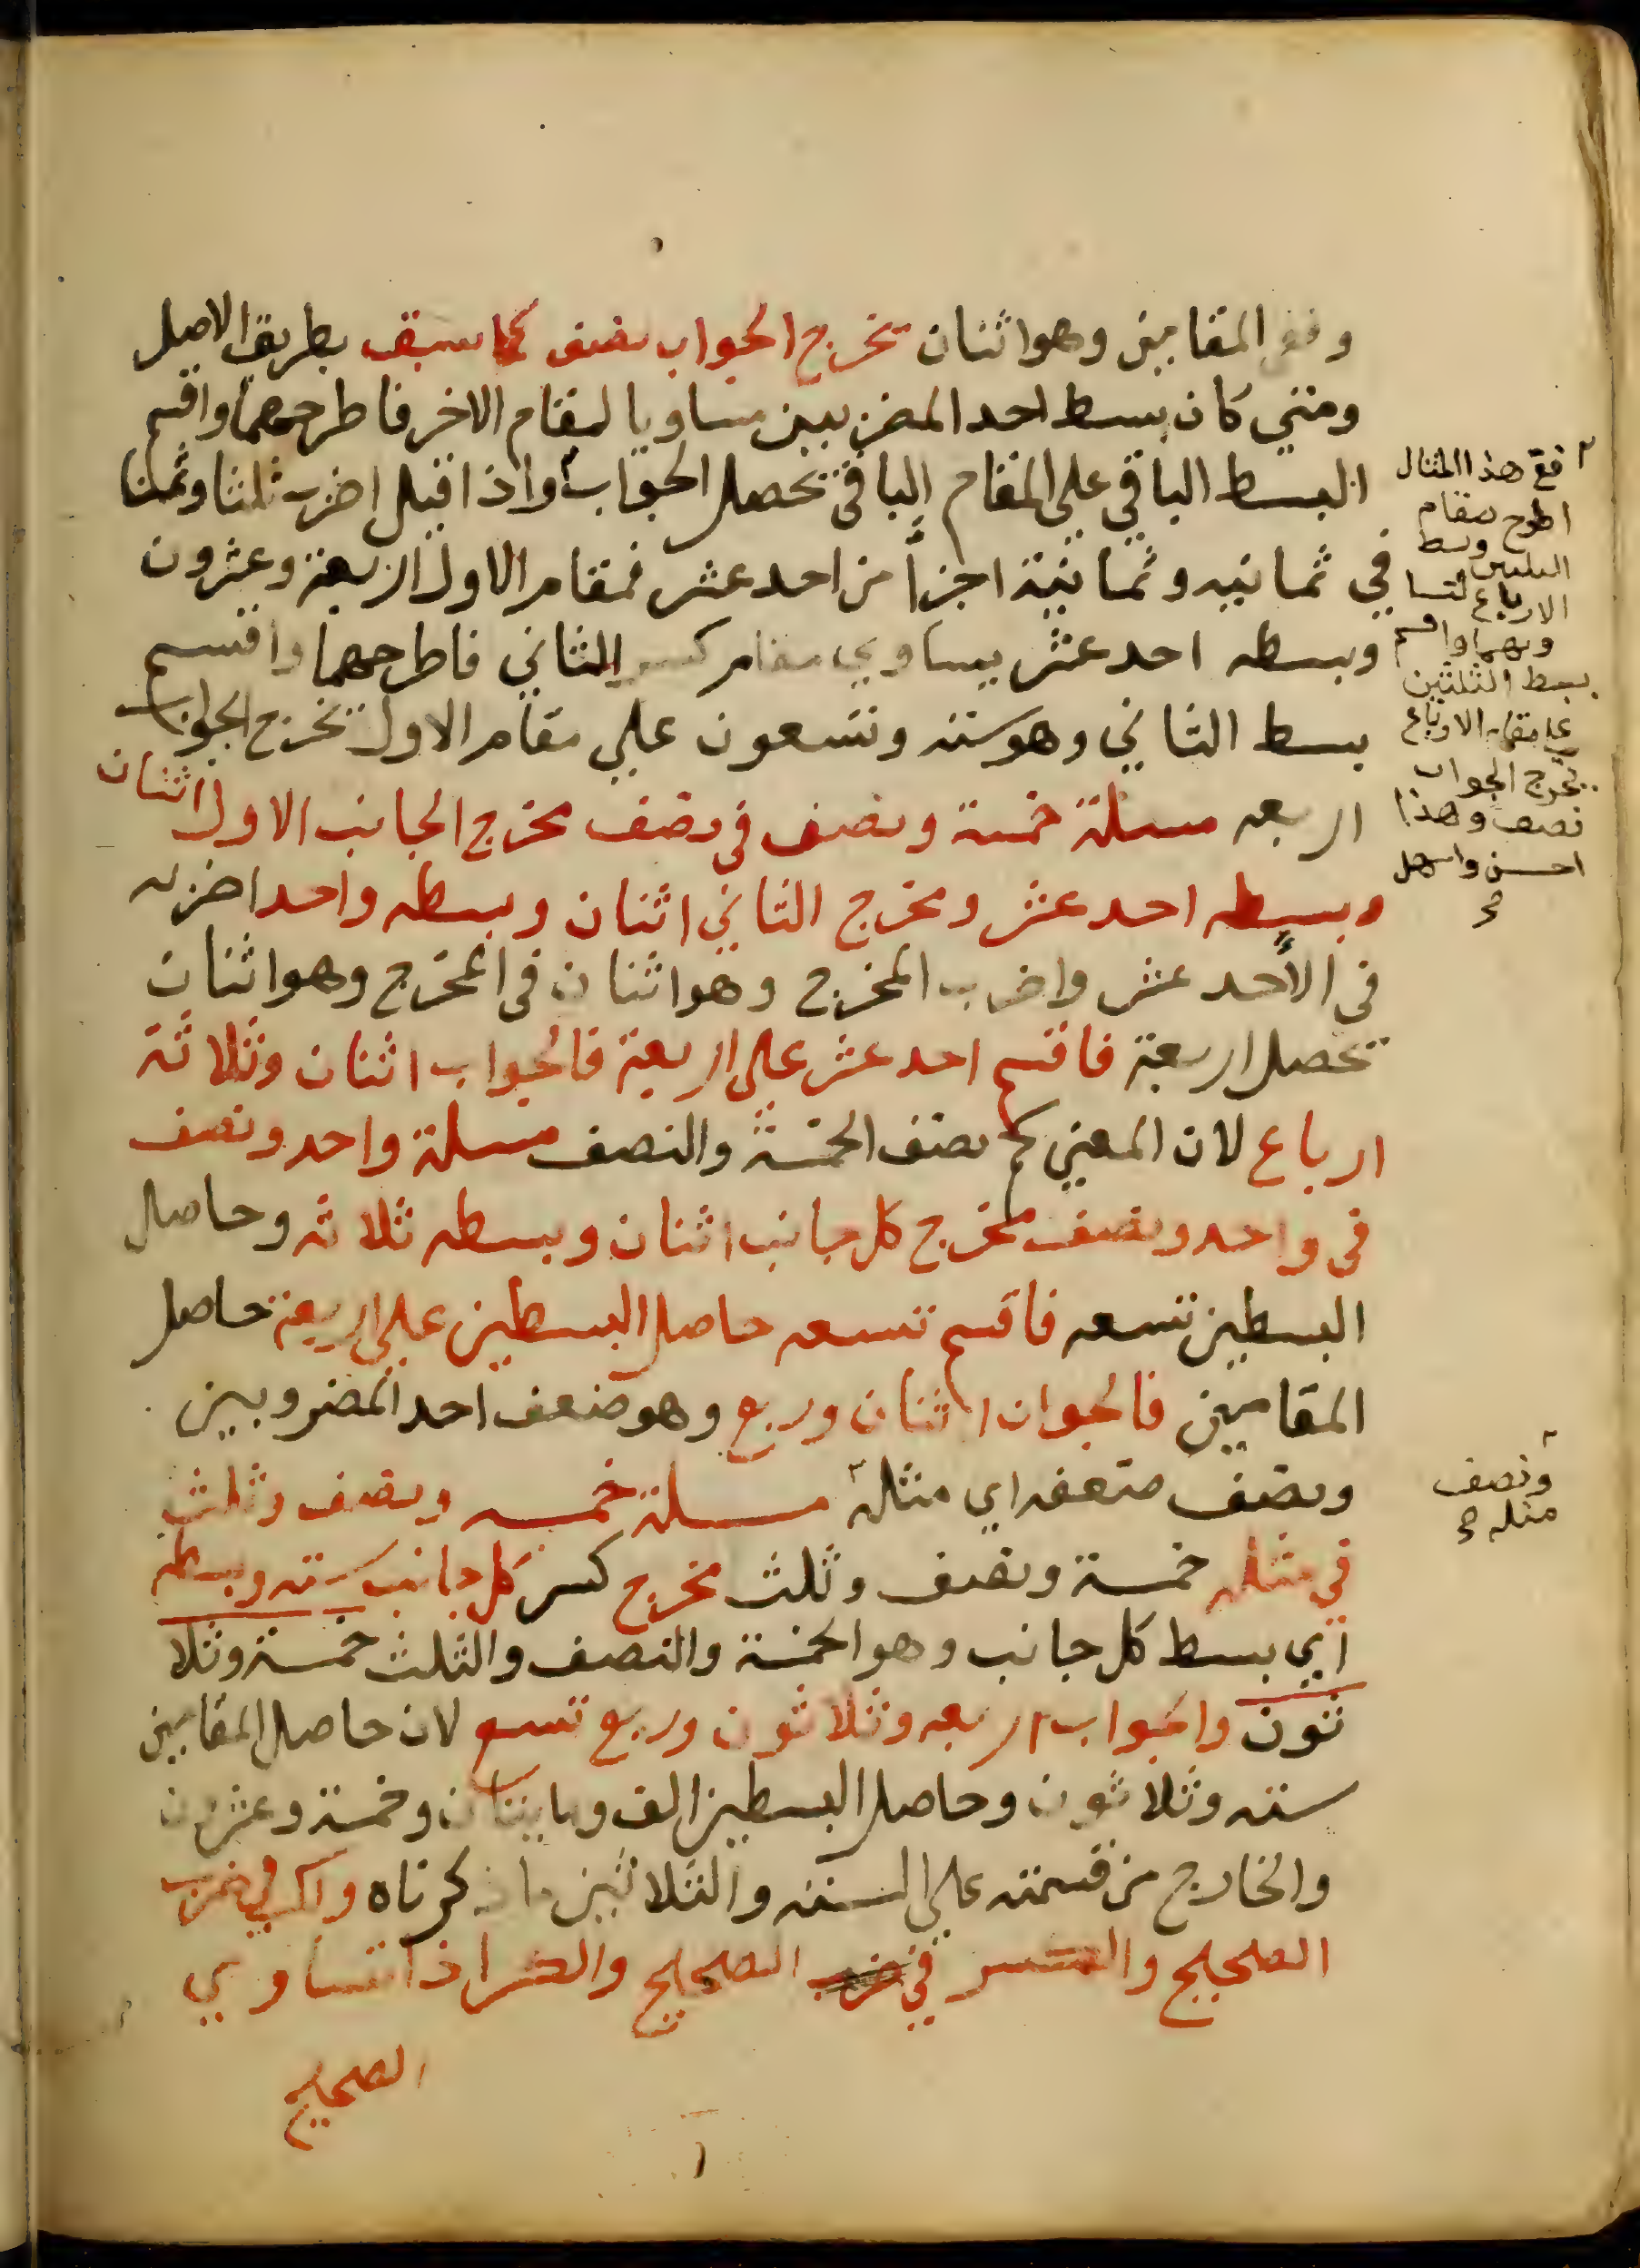 وفق المقامين وهو اثنان تخرج الجواب نصف كما سبق بطريق الاصل
ومتي كان بسط احد المضربيين مساويا لمقام الاخر فاطرحهما واقسم
البسط الباقي علي المقام الباقي تحصل الجواب واذا قيل اضرب ثلثا وثمنا
في ثمانيه وثمانية اجزأ من احد عشر فمقام الاول اربعة وعشرون
وبسطه احد عشر يساوي مقام كسر الثاني فاطرحهما واقسم
بسط الثاني وهو ستة وتسعون علي مقام الاول تخرج الجواب
اربعه مسلة خمسة ونصف في نصف مخرج الجانب الاول اثنان
وبسطه احد عشر ومخرج الثاني اثنان وبسطه واحد اضربه
في الأحد عشر واضرب المخرج وهو اثنان في المخرج وهو اثنان
تحصل اربعة فاقسم احد عشر علي اربعة فالجواب اثنان وثلاثة
ارباع لان المعني كم نصف الخمسة والنصف مسلة واحد ونصف
في واحد ونصف مخرج كل جانب اثنان وبسطه ثلاثه وحاصل
البسطين تسعه فاقسم تسعه حاصل البسطين علي اربعة حاصل
المقامين فالجواب اثنان وربع وهو ضعف احد المضروبين
ونصف ضعفه اي مثله مسلة خمسه ونصف وثلث
في مثله خمسة ونصف وثلث مخرج كسر كل جانب سته وبسطه
اي بسط كل جانب وهو الخمسة والنصف والثلث خمسة وثلا
ثون والجواب اربعه وثلاثون وربع تسع لان حاصل المقامين
سته وثلاثون وحاصل البسطين الف ومايتان وخمسة وعشرون
والخارج من قسمته علي الستة والثلاثين ما ذكرناه واكسر في ضرب
الصحيح والكسر في ضرب الصحيح والكسر اذا تساوي
الصحيح
فع هذا المثال
اطرح مقام
الثلثين وبسط
الارباع لتسا
ويهما واقسم
بسط الثلثين
علي مقام الارباع
يخرج الجواب
نصف وهذا
احسن واسهل
ونصف
مثله